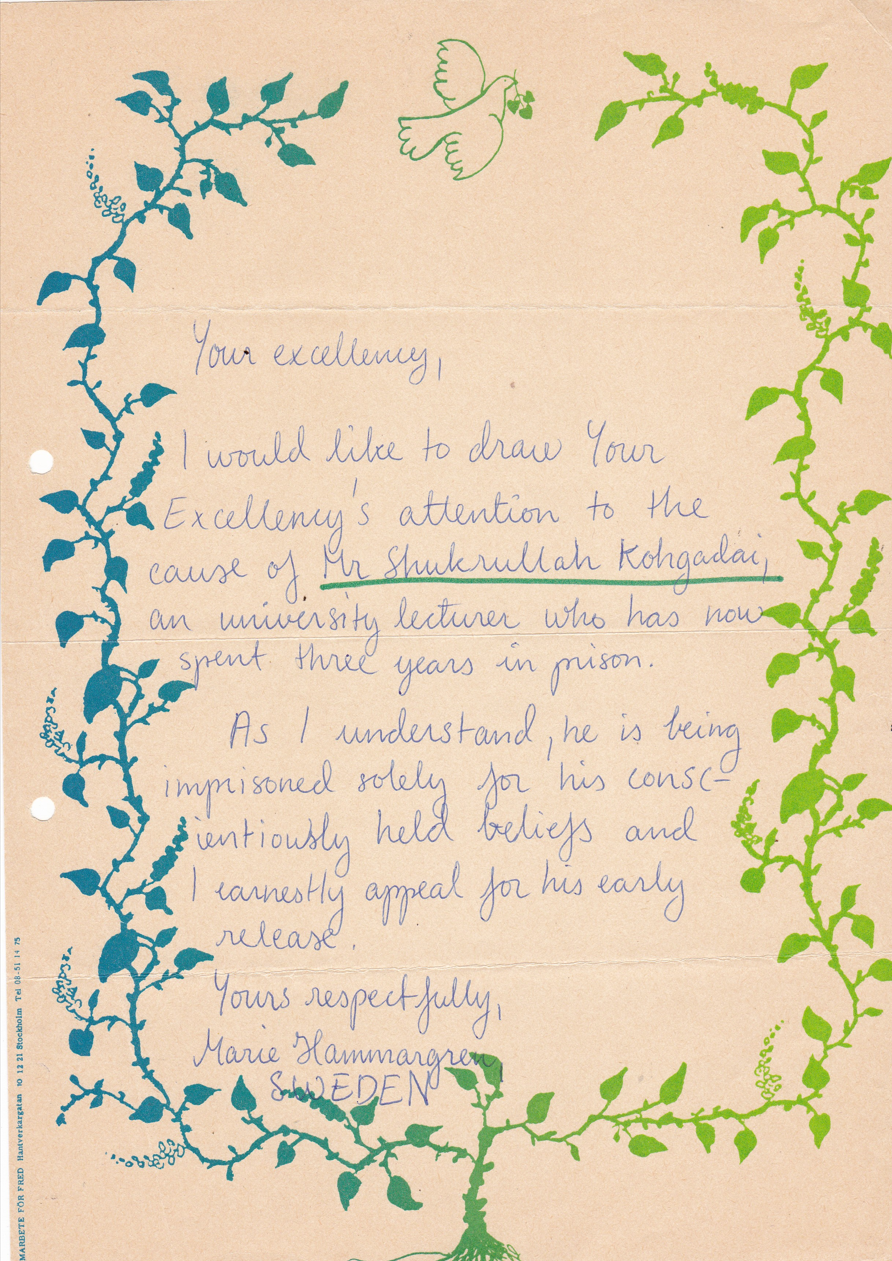 Your excellency,
I would like to draw Your
Excellency's attention to the
cause of Mr Shukrullah Kohgadai,
an university lecturer who has now
spent three years in prison.
As I understand, he is being
imprisoned solely for his consc-
ientiously held beliefs and
I earnestly appeal for his early
release.
Yours respectfully,
Marie Hammargren,
SWEDEN
MARBETE FÖR FRED Hantverkargatan 10 12 21 Stockholm Tel 08-51 14 75